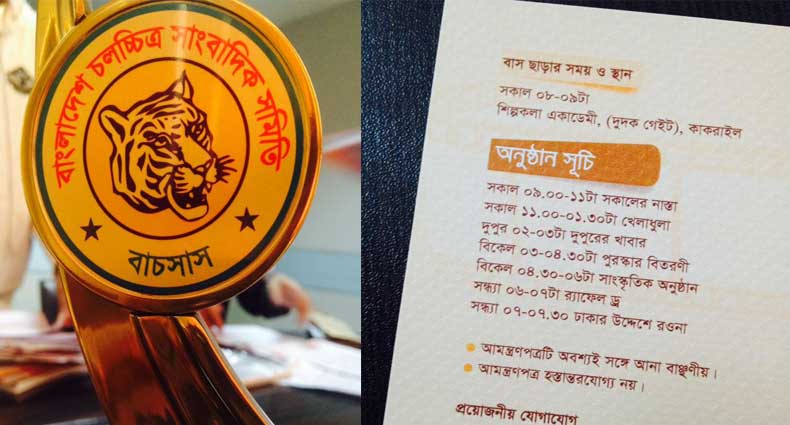 বাংলাদেশ চলচ্চিত্র সাংবাদিক সমিতি
বাচসাস
বাস ছাড়ার সময় ও স্থান
সকাল ০৮-০৯টা
শিল্পকলা একাডেমী, (দুদক গেইট), কাকরাইল
অনুষ্ঠান সূচি
সকাল ০৯.০০-১১টা সকালের নাস্তা
সকাল ১১.০০-০১.৩০টা খেলাধুলা
দুপুর ০২-০৩টা দুপুরের খাবার
বিকেল ০৩-০৪.৩০টা পুরস্কার বিতরণী
বিকেল ০৪.৩০-০৬টা সাংস্কৃতিক অনুষ্ঠান
সন্ধ্যা ০৬-০৭টা র‍্যাফেল ড্র
সন্ধ্যা ০৭-০৭.৩০ ঢাকার উদ্দেশে রওনা
আমন্ত্রণপত্রটি অবশ্যই সঙ্গে আনা বাঞ্ছণীয়।
আমন্ত্রণপত্র হস্তান্তরযোগ্য নয়।
প্রয়োজনীয় যোগাযোগ